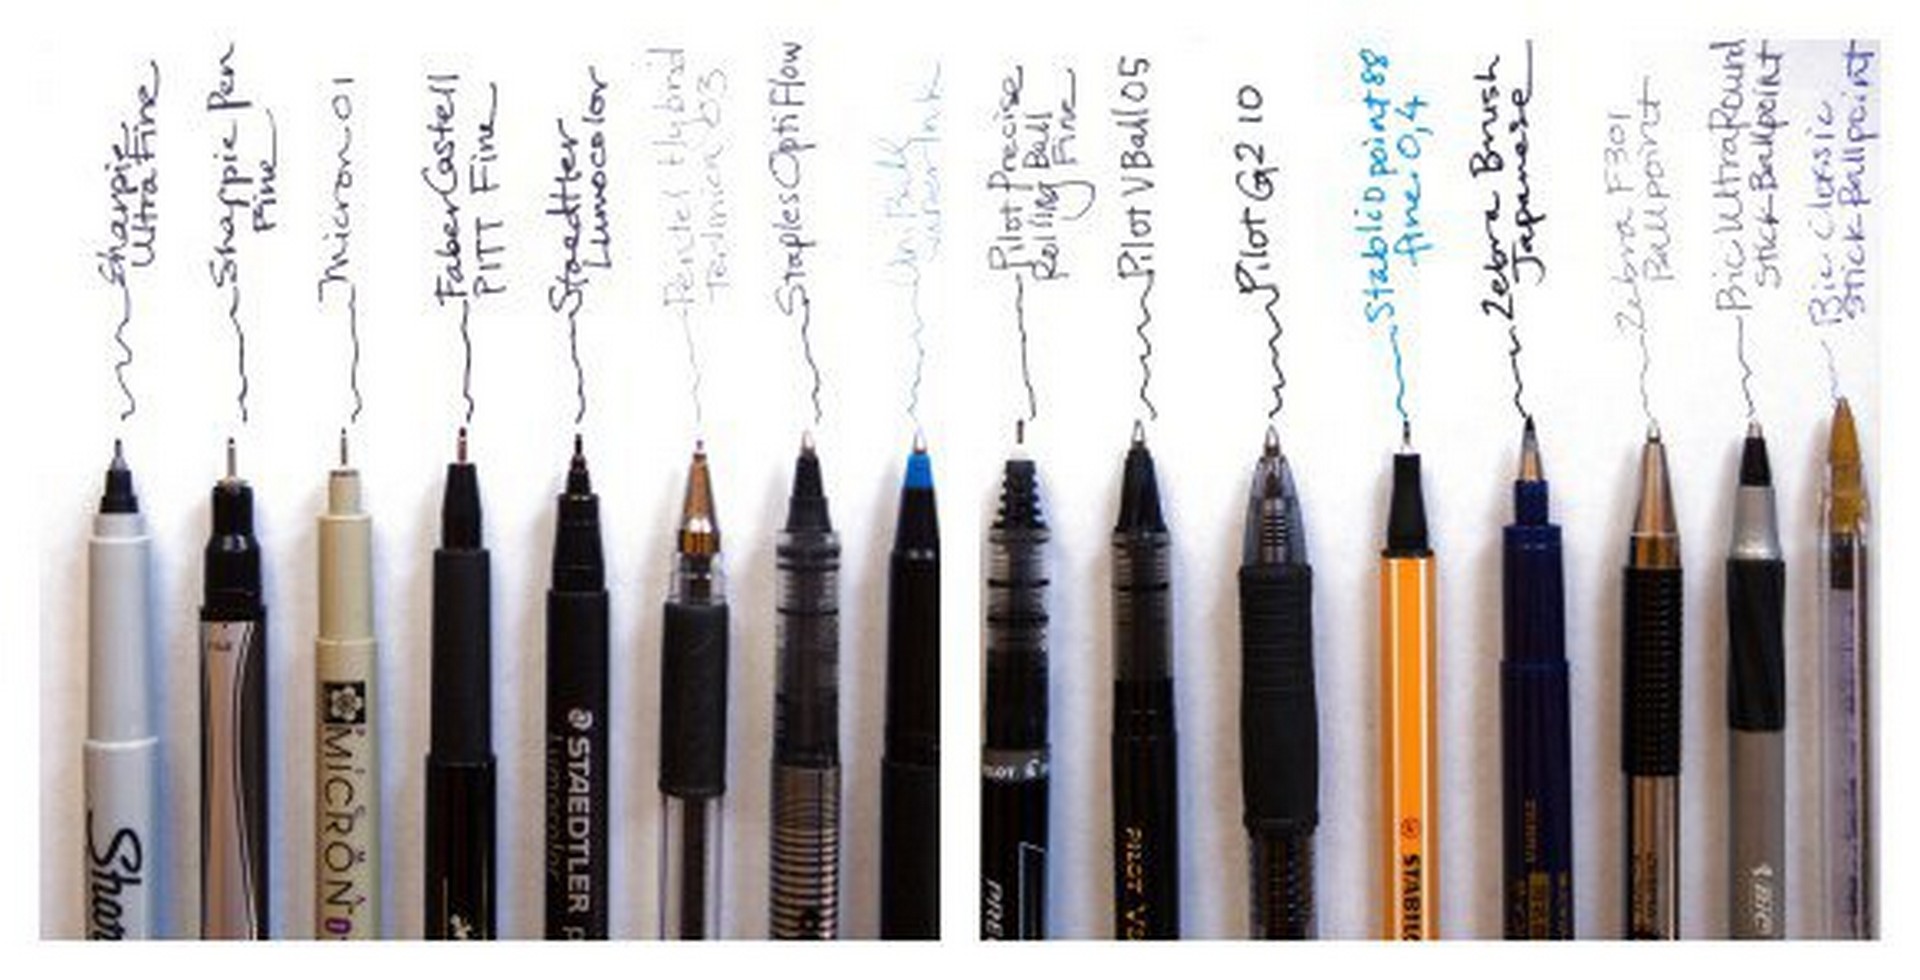 Sharpie
Ultra Fine
Sharpie Pen
Fine
Micron 01
FaberCastell
PITT Fine
Staedtler
Lumocolor
Pentel Hybrid
03
Staples OptiFlow
Uni Ball
Pilot Precise
Rolling Ball
Fine
Pilot V Ball 05
Pilot G2 10
Stabilo point 88
fine 0,4
Zebra Brush
Japanese
Zebra F301
Ballpoint
Bic Ultra Round
Stick Ballpoint
Bic Classic
Stick Ballpoint
Shar
MICRON
STAEDTLER
Lumocolor
PILOT
PREC
PILOT V5
STABILO
BIC